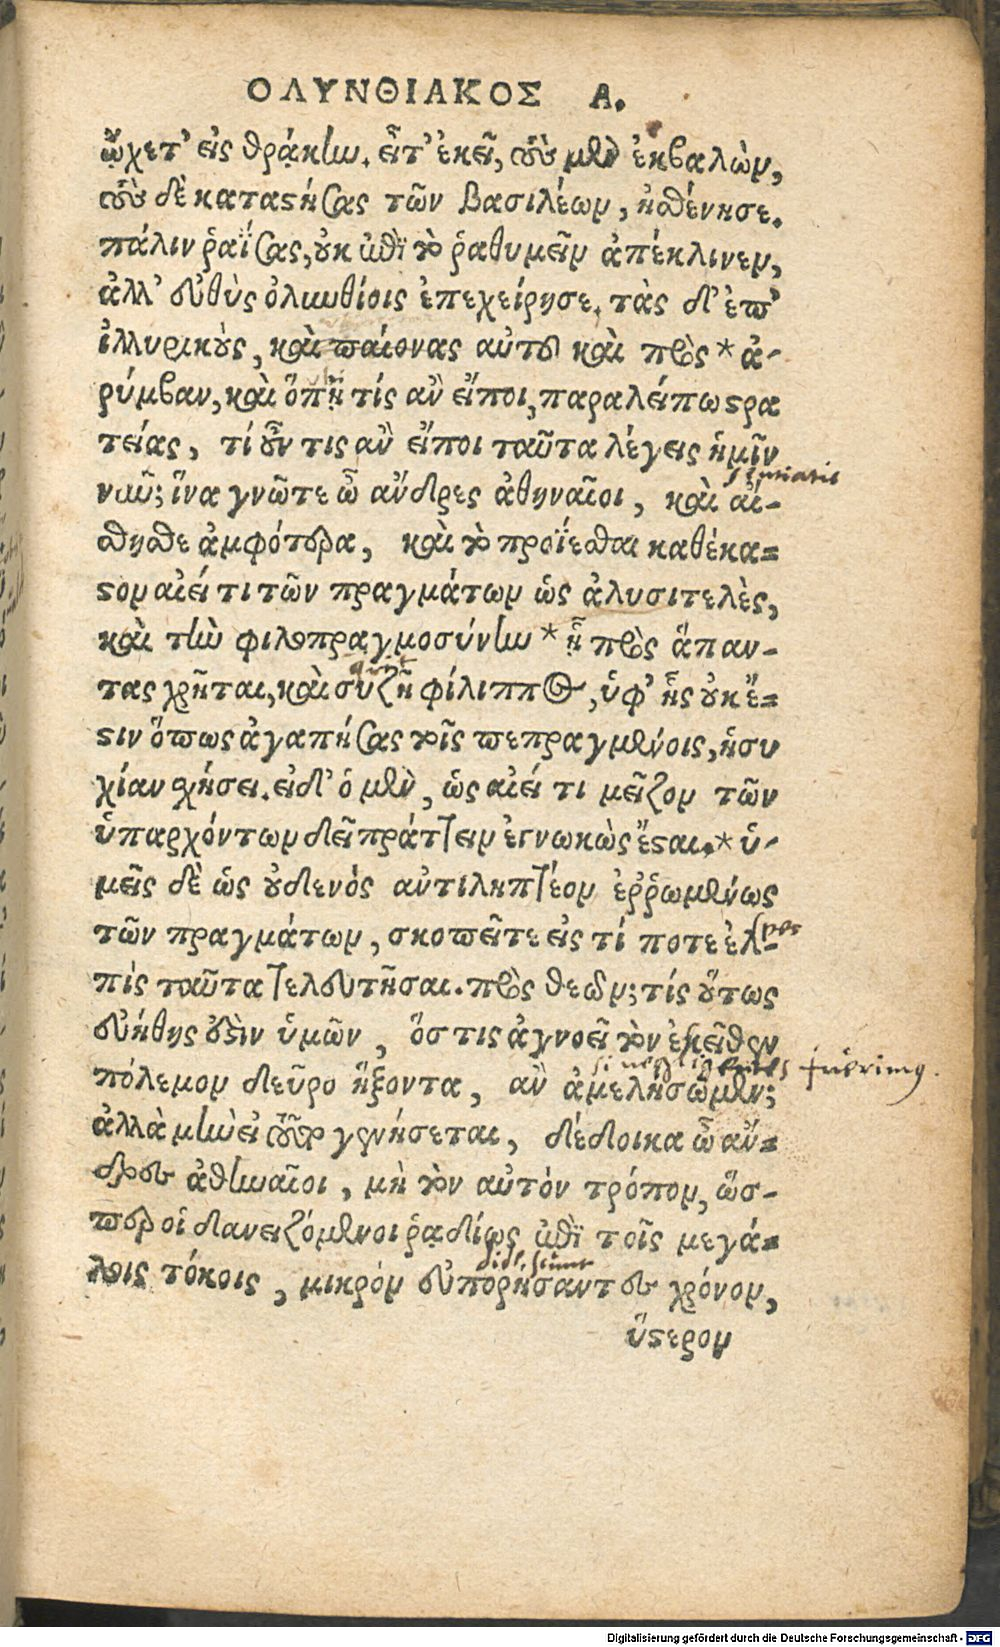 ΟΛΥΝΘΙΑΚΟΣ Α.
ᾤχετ' εἰς θρᾴκην. εἶτ' ἐκεῖ, τοὺς μὲν ἐκβαλὼν,
τοὺς δὲ καταστήσας τῶν βασιλέων, ἠσθένησε.
πάλιν ῥαΐσας, οὐκ ἐπὶ τὸ ῥαθυμεῖν ἀπέκλινεν,
ἀλλ' εὐθὺς ὀλυνθίοις ἐπεχείρησε. τὰς δ' ἐπ'
ἰλλυριοὺς, καὶ παίονας αὐτοῦ καὶ πρὸς * ἀ-
ρύμβαν, καὶ ὅπῃ τίς ἂν εἴποι, παραλείπω στρα
τείας, τί οὖν τις ἂν εἴποι ταῦτα λέγεις ἡμῖν
νῦν; ἵνα γνῶτε ὦ ἄνδρες ἀθηναῖοι, καὶ αἴ-
σθησθε ἀμφότερα, καὶ τὸ προΐεσθαι καθέκα-
στον αἰεί τι τῶν πραγμάτων ὡς ἀλυσιτελὲς,
καὶ τὴν φιλοπραγμοσύνην * ᾗ πρὸς ἅπαν-
τας χρῆται, καὶ συζῇ φίλιππος, ὑφ' ἧς οὐκ ἔ-
στιν ὅπως ἀγαπήσας τοῖς πεπραγμένοις, ἡσυ
χίαν σχήσει. εἰ δ' ὁ μὲν, ὡς αἰεί τι μεῖζον τῶν
ὑπαρχόντων δεῖ πράττειν ἐγνωκὼς ἔσται. * ὑ-
μεῖς δὲ ὡς οὐδενὸς ἀντιληπτέον ἐῤῥωμένως
τῶν πραγμάτων, σκοπεῖτε εἰς τί ποτε ἐλ-
πὶς ταῦτα τελευτῆσαι. πρὸς θεῶν; τίς οὕτως
εὐήθης ἐστὶν ὑμῶν, ὅστις ἀγνοεῖ τὸν ἐκεῖθεν
πόλεμον δεῦρο ἥξοντα, ἂν ἀμελήσωμεν;
ἀλλὰ μὴν εἰ τοῦτο γενήσεται, δέδοικα ὦ ἄν-
δρες ἀθηναῖοι, μὴ τὸν αὐτόν τρόπον, ὥσ-
περ οἱ δανειζόμενοι ῥᾳδίως ἐπὶ τοῖς μεγά-
λοις τόκοις, μικρὸν εὐπορήσαντες χρόνον,
ὕστερον